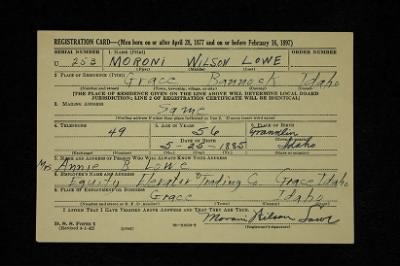 REGISTRATION CARD—(Men born on or after April 28, 1877 and on or before February 16, 1897)
SERIAL NUMBER 1. NAME (Print) ORDER NUMBER
U 253 MORONI WILSON LOWE
(First) (Middle) (Last)
2. PLACE OF RESIDENCE (Print)
Grace Bannock Idaho
(Number and street) (Town, township, village, or city) (County) (State)
[THE PLACE OF RESIDENCE GIVEN ON THE LINE ABOVE WILL DETERMINE LOCAL BOARD
JURISDICTION; LINE 2 OF REGISTRATION CERTIFICATE WILL BE IDENTICAL]
3. MAILING ADDRESS
Same
[Mailing address if other than place indicated on line 2. If same insert word same]
4. TELEPHONE 5. AGE IN YEARS 6. PLACE OF BIRTH
49 56 Franklin
DATE OF BIRTH
5-25-1885 Idaho
(Mo.) (Day) (Yr.) (State or country)
7. NAME AND ADDRESS OF PERSON WHO WILL ALWAYS KNOW YOUR ADDRESS
Mrs Annie B. Lowe
8. EMPLOYER'S NAME AND ADDRESS
Equity Elevator & Trading Co. Grace Idaho
9. PLACE OF EMPLOYMENT OR BUSINESS
Grace Idaho
(Number and street or R. F. D. number) (Town) (County) (State)
I AFFIRM THAT I HAVE VERIFIED ABOVE ANSWERS AND THAT THEY ARE TRUE.
D. S. S. Form 1
(Revised 4-1-42) Moroni Wilson Lowe
(Registrant's signature)